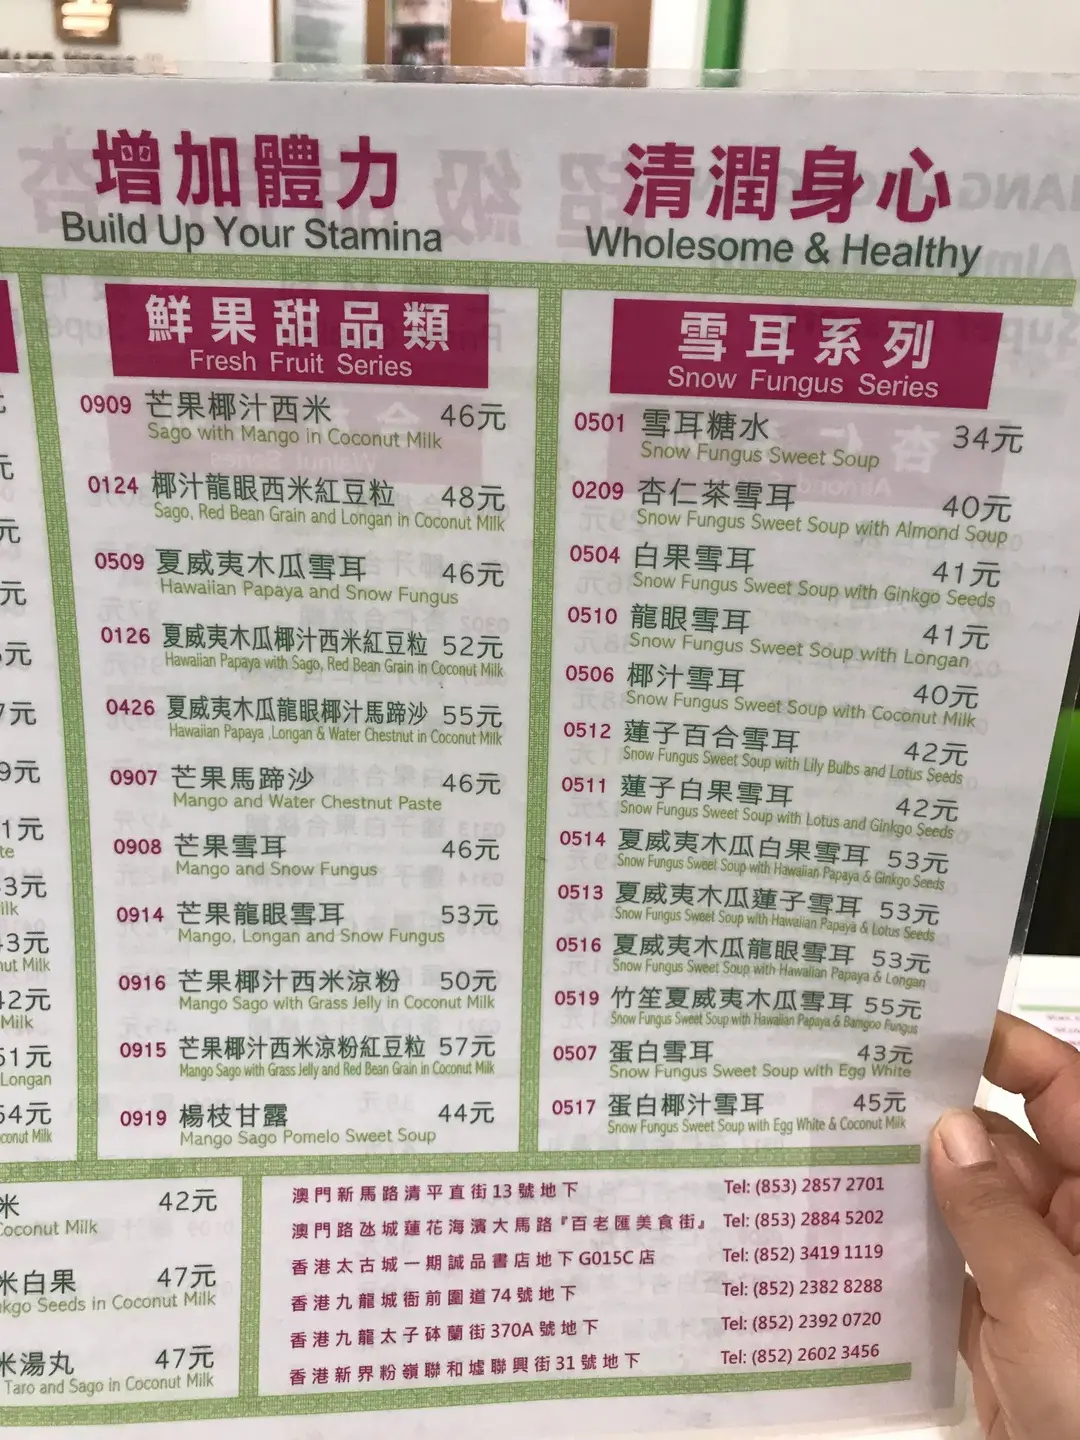 增加體力
Build Up Your Stamina
清潤身心
Wholesome & Healthy
鮮果甜品類
Fresh Fruit Series
0909 芒果椰汁西米 46元
Sago with Mango in Coconut Milk
0124 椰汁龍眼西米紅豆粒 48元
Sago, Red Bean Grain and Longan in Coconut Milk
0509 夏威夷木瓜雪耳 46元
Hawaiian Papaya and Snow Fungus
0126 夏威夷木瓜椰汁西米紅豆粒 52元
Hawaiian Papaya with Sago, Red Bean Grain in Coconut Milk
0426 夏威夷木瓜龍眼椰汁馬蹄沙 55元
Hawaiian Papaya ,Longan & Water Chestnut in Coconut Milk
0907 芒果馬蹄沙 46元
Mango and Water Chestnut Paste
0908 芒果雪耳 46元
Mango and Snow Fungus
0914 芒果龍眼雪耳 53元
Mango, Longan and Snow Fungus
0916 芒果椰汁西米涼粉 50元
Mango Sago with Grass Jelly in Coconut Milk
0915 芒果椰汁西米涼粉紅豆粒 57元
Mango Sago with Grass Jelly and Red Bean Grain in Coconut Milk
0919 楊枝甘露 44元
Mango Sago Pomelo Sweet Soup
雪耳系列
Snow Fungus Series
0501 雪耳糖水 34元
Snow Fungus Sweet Soup
0209 杏仁茶雪耳 40元
Snow Fungus Sweet Soup with Almond Soup
0504 白果雪耳 41元
Snow Fungus Sweet Soup with Ginkgo Seeds
0510 龍眼雪耳 41元
Snow Fungus Sweet Soup with Longan
0506 椰汁雪耳 40元
Snow Fungus Sweet Soup with Coconut Milk
0512 蓮子百合雪耳 42元
Snow Fungus Sweet Soup with Lily Bulbs and Lotus Seeds
0511 蓮子白果雪耳 42元
Snow Fungus Sweet Soup with Lotus and Ginkgo Seeds
0514 夏威夷木瓜白果雪耳 53元
Snow Fungus Sweet Soup with Hawaiian Papaya & Ginkgo Seeds
0513 夏威夷木瓜蓮子雪耳 53元
Snow Fungus Sweet Soup with Hawaiian Papaya & Lotus Seeds
0516 夏威夷木瓜龍眼雪耳 53元
Snow Fungus Sweet Soup with Hawaiian Papaya & Longan
0519 竹笙夏威夷木瓜雪耳 55元
Snow Fungus Sweet Soup with Hawaiian Papaya & Bamgoo Fungus
0507 蛋白雪耳 43元
Snow Fungus Sweet Soup with Egg White
0517 蛋白椰汁雪耳 45元
Snow Fungus Sweet Soup with Egg White & Coconut Milk
米 42元
Coconut Milk
米白果 47元
kgo Seeds in Coconut Milk
米湯丸 47元
Taro and Sago in Coconut Milk
澳門新馬路清平直街13號地下 Tel: (853) 2857 2701
澳門路氹城蓮花海濱大馬路『百老匯美食街』 Tel: (853) 2884 5202
香港太古城一期誠品書店地下G015C店 Tel: (852) 3419 1119
香港九龍城衙前圍道74號地下 Tel: (852) 2382 8288
香港九龍太子砵蘭街370A號地下 Tel: (852) 2392 0720
香港新界粉嶺聯和墟聯興街31號地下 Tel: (852) 2602 3456